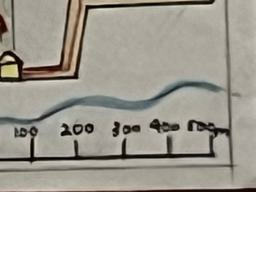 100 200 300 400 500m